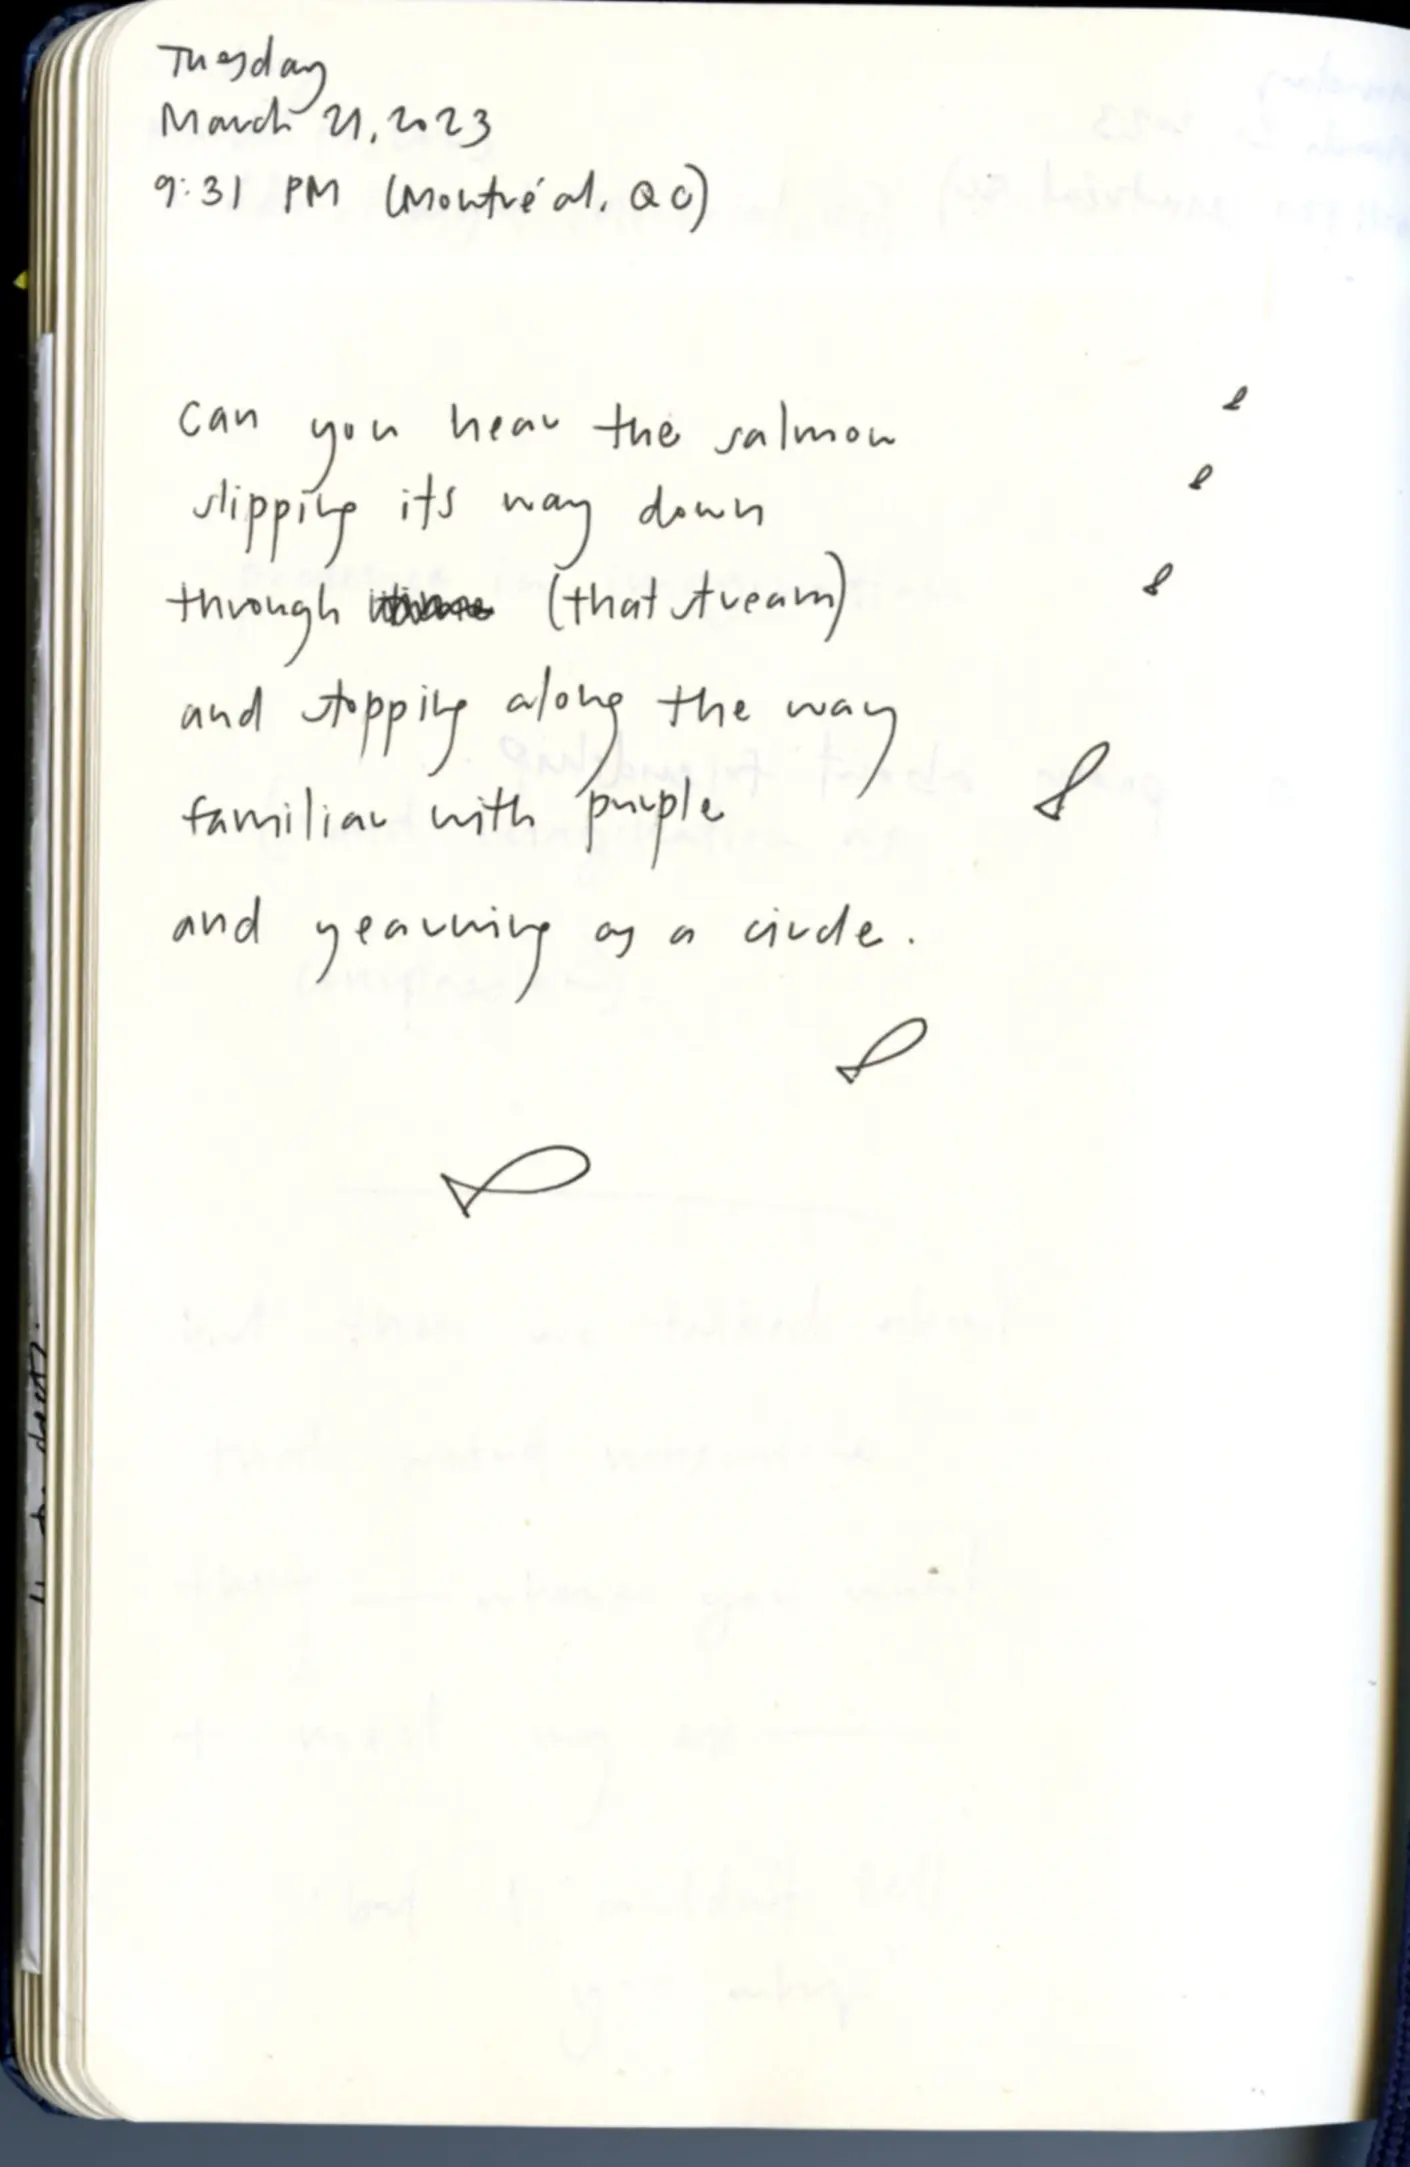 Tuesday
March 21, 2023
9:31 PM (Montréal, QC)
Can you hear the salmon
slipping its way down
through (that stream)
and stopping along the way
familiar with purple
and yearning as a circle.